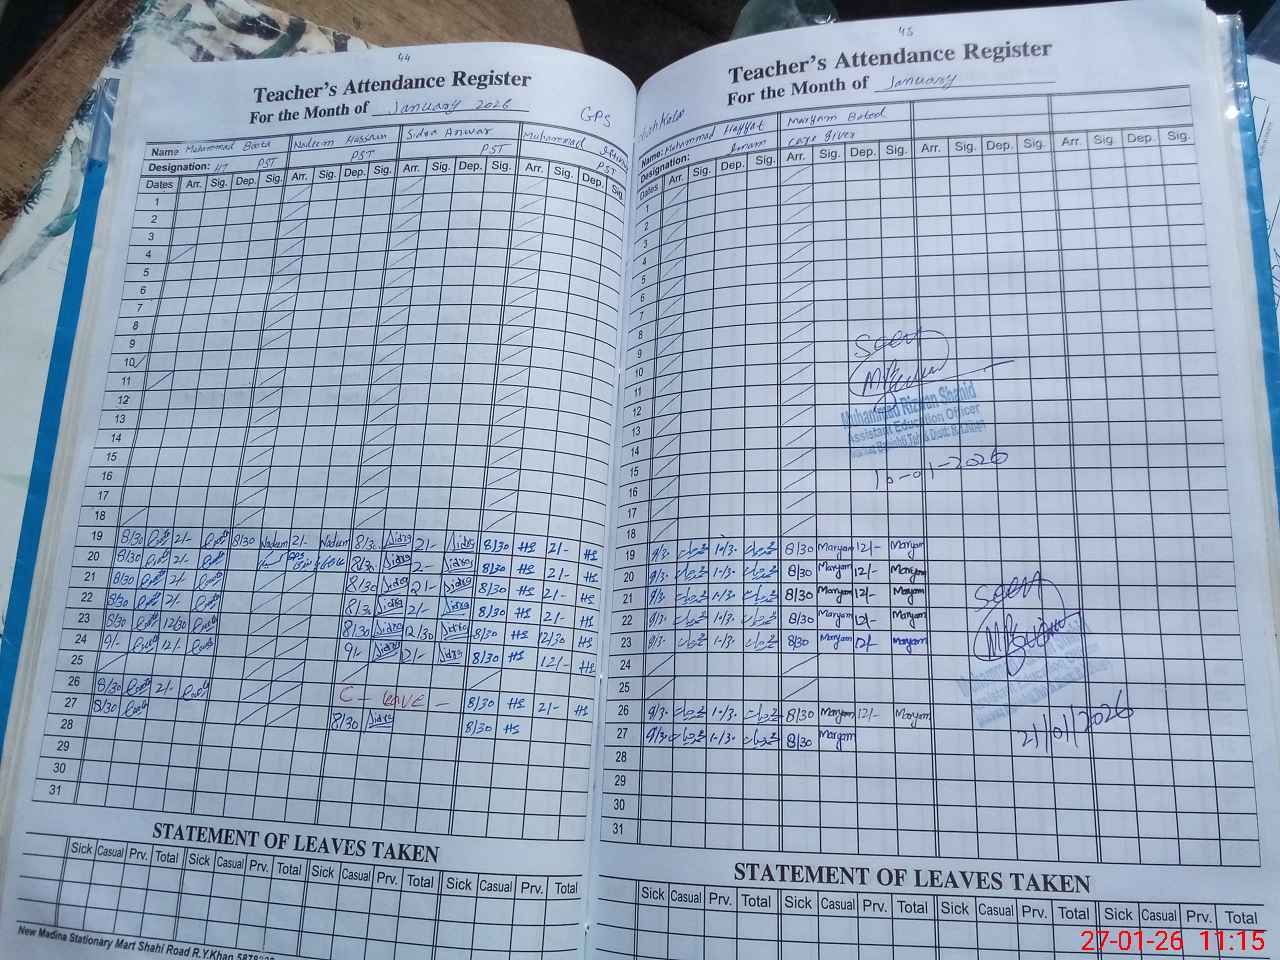 44
Teacher's Attendance Register
For the Month of January 2026
GPS
Name: Muhammad Boota Nadeem Hassan Sidra Anwar Muhammad
Designation: HT PST PST PST PST
Dates Arr. Sig. Dep. Sig. Arr. Sig. Dep. Sig. Arr. Sig. Dep. Sig. Arr. Sig. Dep. Sig.
1
2
3
4
5
6
7
8
9
10
11
12
13
14
15
16
17
18
19 8/30 2/- 8/30 Nadeem 2/- Nadeem 8/30 Sidra 2/- Sidra 8/30 HS 2/- HS
20 8/30 2/- 8/30 Sidra 2- Sidra 8/30 HS 2/- HS
21 8/30 2/- 8/30 Sidra 2/- Sidra 8/30 HS 2/- HS
22 8/30 2/- 8/30 Sidra 2/- Sidra 8/30 HS 2/- HS
23 8/30 12/30 8/30 Sidra 12/30 Sidra 8/30 HS 12/30 HS
24 9/- 12/- 9/- Sidra 12/- Sidra 8/30 HS 12/- HS
25
26 8/30 2/- C - leave - 8/30 HS 2/- HS
27 8/30 8/30 Sidra 8/30 HS
28
29
30
31
STATEMENT OF LEAVES TAKEN
Sick Casual Prv. Total Sick Casual Prv. Total Sick Casual Prv. Total Sick Casual Prv. Total
New Madina Stationary Mart Shahi Road R.Y.Khan
45
Teacher's Attendance Register
For the Month of January
Name: Muhammad Hayyat Maryam Batool
Designation: care giver
Dates Arr. Sig. Dep. Sig. Arr. Sig. Dep. Sig. Arr. Sig. Dep. Sig. Arr. Sig. Dep. Sig.
1
2
3
4
5
6
7
8
9
Seen
10
11
12
Muhammad Rizwan Shahid
13
Assistant Education Officer
14
15
16-01-2026
16
17
18
19 8/30 Maryam 12/- Maryam
20 8/30 Maryam 12/- Maryam
21 8/30 Maryam 12/- Maryam
Seen
22 8/30 Maryam 12/- Maryam
23 8/30 Maryam 12/- Maryam
24
25
26 8/30 Maryam 12/- Maryam
27 8/30 Maryam
21/01/2026
28
29
30
31
STATEMENT OF LEAVES TAKEN
Sick Casual Prv. Total Sick Casual Prv. Total Sick Casual Prv. Total Sick Casual Prv. Total
27-01-26 11:15